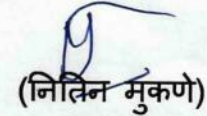 (नितिन मुकणे)